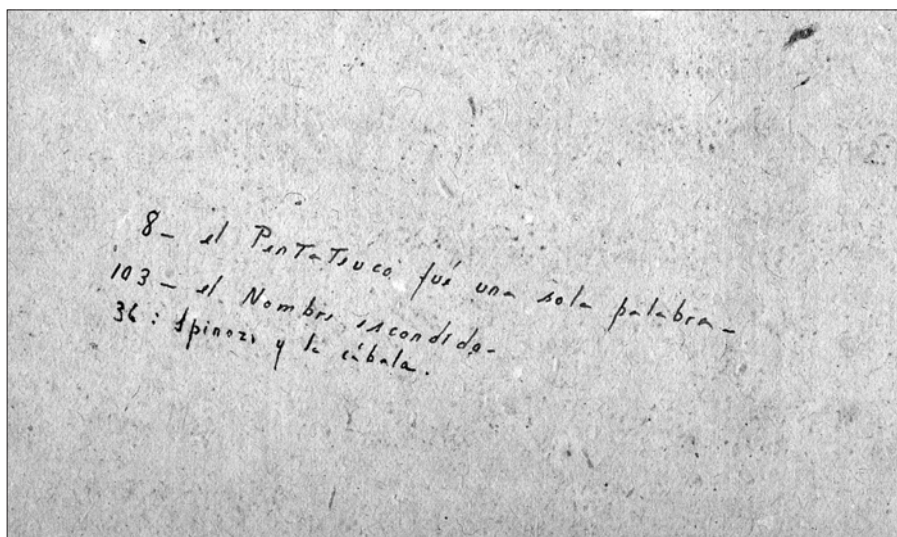 8- el Pentateuco fué una sola palabra-
103- el Nombre escondido-
36: Spinoza y la cábala.